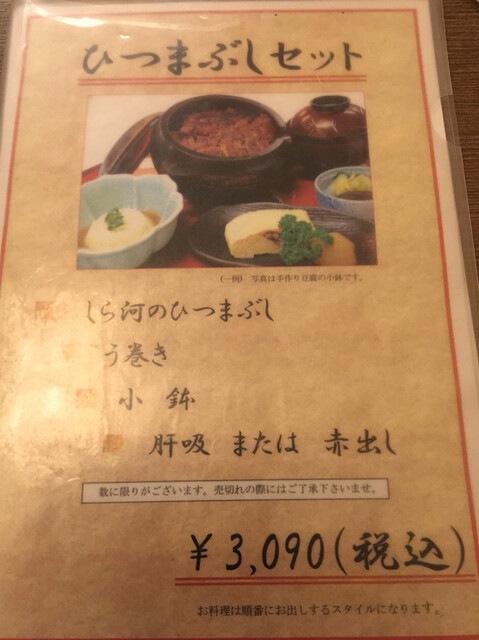 ひつまぶしセット
（一例） 写真は手作り豆腐の小鉢です。
しら河のひつまぶし
う巻き
小 鉢
肝吸 または 赤出し
数に限りがございます。売切れの際にはご了承下さいませ。
¥3,090(税込)
お料理は順番にお出しするスタイルになります。